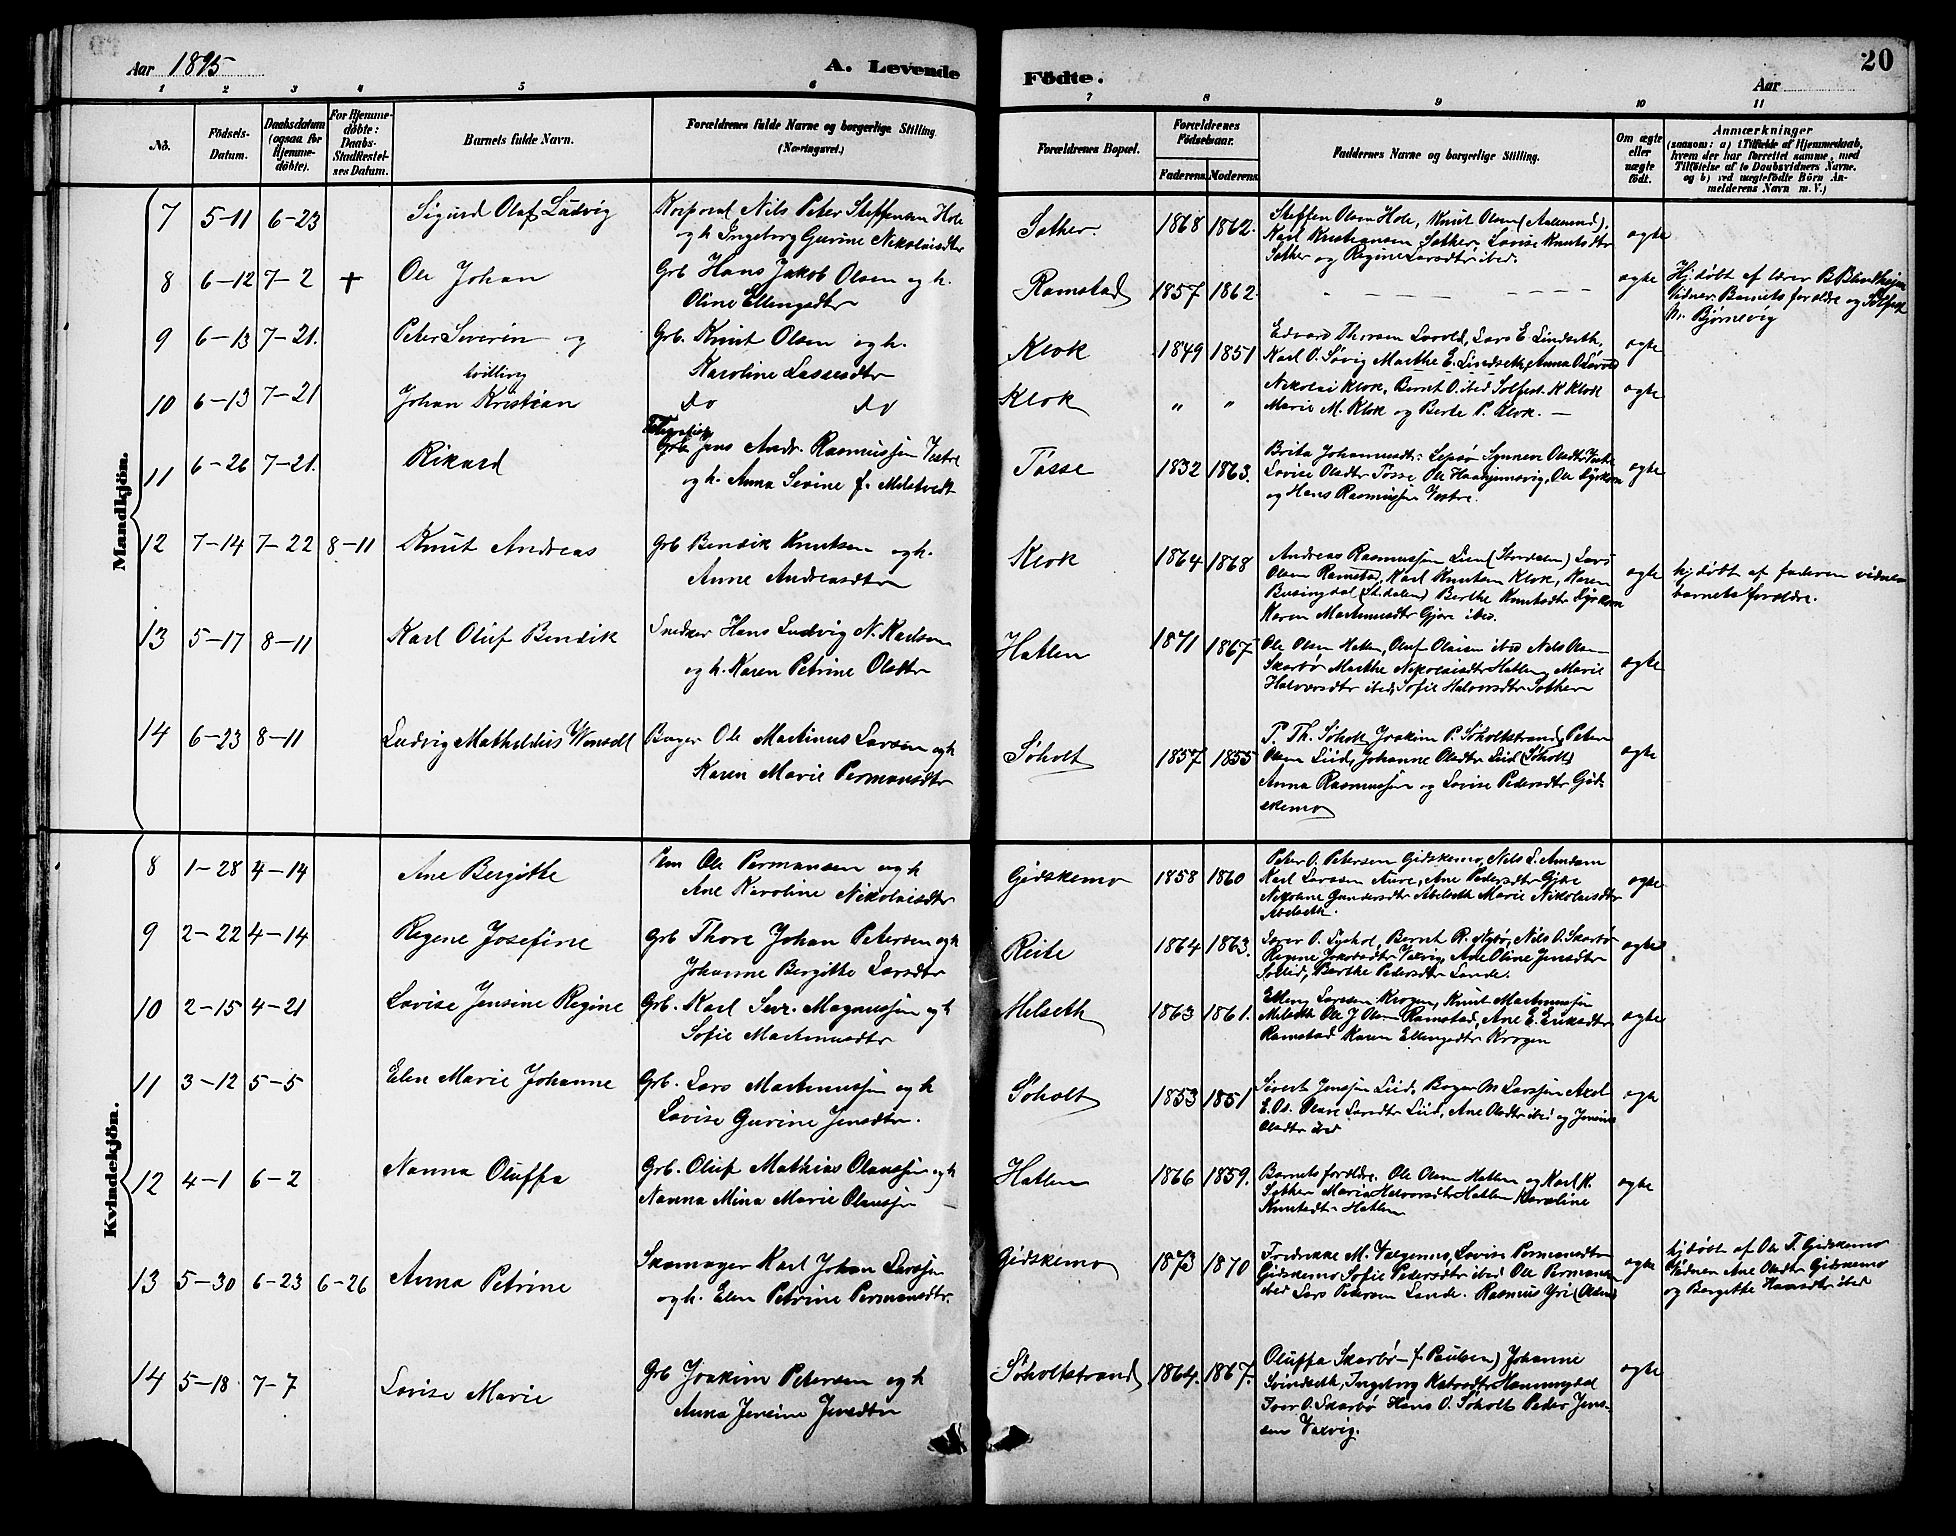 Aar 1895
A. Levende
Födte.
Aar
20
1 2 3 4 5 6 7 8 9 10 11
No.
Födsels-
Datum.
Daabsdatum
(ogsaa for
Hjemme-
döbte).
For Hjemme-
döbte:
Daabs-
Stadfæstel-
ses Datum.
Barnets fulde Navn.
Forældrenes fulde Navne og borgerlige Stilling
(Næringsvei.)
Forældrenes Bopæl.
Forældrenes
Födselsaar.
Faderens.
Moderens.
Faddernes Navne og borgerlige Stilling.
Om ægte
eller
uægte
födt.
Anmærkninger
(saasom: a) i Tilfælde af Hjemmedaab,
hvem der har forrettet samme, med
Tilföielse af to Daabsvidners Navne,
og b) ved uægtefödte Börn An-
melderens Navn m. V.)
Mandkjön.
7 5-11 6-23 Sigurd Olaf Ludvig
Korporal Nils Peter Steffensen Hole
og h. Ingeborg Gurine Nikolaisdtr
Sother. 1868 1862.
Steffen Olsen Hole, Knut Olsen (Aalesund),
Karl Kristiansen Sother, Lovise Knutsdtr
Sother og Regine Larsdtr ibed.
ægte
8 6-12 7-2 + Ole Johan
Grb Hans Jakob Olsen og h.
Oline Ellingsdtr
Ramstad 1857 1862.
ægte
Hj.döbt af lærer
Vidner: Barnets forældre og
Bjørnevig
9 6-13 7-21. Peter Severin og
tvilling
Grb. Knut Olsen og h.
Karoline Lassesdtr
Klok 1849 1851
Edvard Thorsen Lovold, Lars E. Lindseth,
Karl O. Søvig Marthe E. Lindseth, Anna O Løvold
ægte
10 6-13 7-21 Johan Kristian
do do
Klok " "
Nikolai Klok, Bernt O. ibed Solfest K Klok
Marie M. Klok og Berte P. Klok. —
ægte
11 6-26 7-21. Rikard
Grb. Jens Andr. Rasmussen Vestre
og h. Anna Sevine f. Melstvedt
Tosse 1832 1863.
Brita Johannesdtr Lepsø Synneve Olsdtr
Lovise Olsdtr Tosse Ole Haahjemsvig, Ole
og Hans Rasmussen Vestre.
ægte
12 7-14 7-22 8-11 Knut Andreas
Grb Bendik Knutsen og h.
Anne Andreasdtr
Klok 1864 1868
Andreas Rasmussen Lien (Stordalen) Lars
Olsen Ramstad, Karl Knutsen Klok, Karen
Busingdal (St.dalen) Berthe Knutsdtr
Karen Martinusdtr Gjøre ibed.
ægte
hj.döbt af faderen vidner
barnets forældre.
13 5-17 8-11 Karl Oluf Bendik
Snedker Hans Ludvig N. Karlsen
og h. Karen Petrine Olsdtr
Hatlen 1871 1867
Ole Olsen Hatlen, Oluf Olsen ibed Nils Olsen
Skarbø Marthe Nikolaisdtr Hatlen, Marie
Halvorsdtr ibed, Sofie Halvorsdtr Sother
ægte
14 6-23 8-11 Ludvig Mathildus Wensell
Bager Ole Martinus Larsen og h
Karen Marie Permansdtr
Søholt 1857 1855
P. Th. Søholt, Joakim P. Søholtstrand, Peter
Olsen Liid, Johanne Olsdtr Liid (Søholt)
Anna Rasmussen og Lovise Pedersdtr Gids-
skemo
ægte
Kvindekjön.
8 1-28 4-14 Ane Bergitte
Ole Permansen og h
Ane Karoline Nikolaisdtr
Gidskemo 1858 1860
Peter O. Petersen Gidskemo, Nils L. Amdam
Karl Larssen Aure, Ane Pedersdtr
Nikoline Gundersdtr Abelseth Marie Nikolaisdtr
Abelseth.
ægte
9 2-22 4-14 Regene Josefine
Grb Thore Johan Petersen og h
Johanne Bergitte Larsdtr
Reite 1864 1863.
Iver O. Syshol, Bernt R. Nysø, Nils O. Skarbø
Regene Jakobsdtr Valvig, Ane Oline Jensdtr
Berthe Pedersdtr Lande.
ægte
10 2-15 4-21 Lovise Jensine Regine
Grb. Karl Sevr. Magnussen og h
Sofie Martinusdtr
Melseth 1863 1861.
Elling Larssen Krogen, Knut Martinussen
Melseth Ole J Olsen Ramstad, Ane E. Eriksdtr
Ramstad Karen Ellingsdtr Krogen
ægte
11 3-12 5-5 Elen Marie Johanne
Grb. Lars Martinussen og h
Lovise Gurine Jensdtr.
Søholt 1853 1851
Sivert Jenssen Liid, Bager M Larssen Axel
Olave Larsdtr Liid, Ane Olsdtr ibed og Jensine
Olsdtr ibed
ægte
12 4-1 6-2 Nanna Oluffa
Grb. Oluf Mathias Olaussen og h
Nanna Mina Marie Olaussen
Hatlen 1866 1859.
Barnets forældre. Ole Olsen Hatlen og Karl K.
Sother Maria Halvorsdtr Hatlen, Karoline
Knutsdtr Hatlen
ægte
13 5-30 6-23 6-26 Anna Petrine
Skomager Karl Johan Larssen
og h. Elen Petrine Permansdtr.
Gidskemo 1873 1870
Fredrikke M. Valgermo, Lovise Permansdtr
Gidskemo Sofie Pedersdtr ibed Ole Permansen
ibed Lars Pedersen Lande. Rasmus Yri (Olden)
ægte
hj.döbt af Ole T. Gidskemo
Vidner Ane Olsdtr Gidskemo
og Bergitte Hansdtr ibed
14 5-18 7-7 Lovise Marie
Grb Joakim Petersen og h
Anna Jensine Jensdtr
Søholtstrand 1864. 1867.
Oluffa Skarbø (f. Paulsen) Johanne
Svindseth, Ingeborg Hammegdal
Iver O. Skarbø Hans O. Søholt Peder Jens-
sen Valvig.
ægte